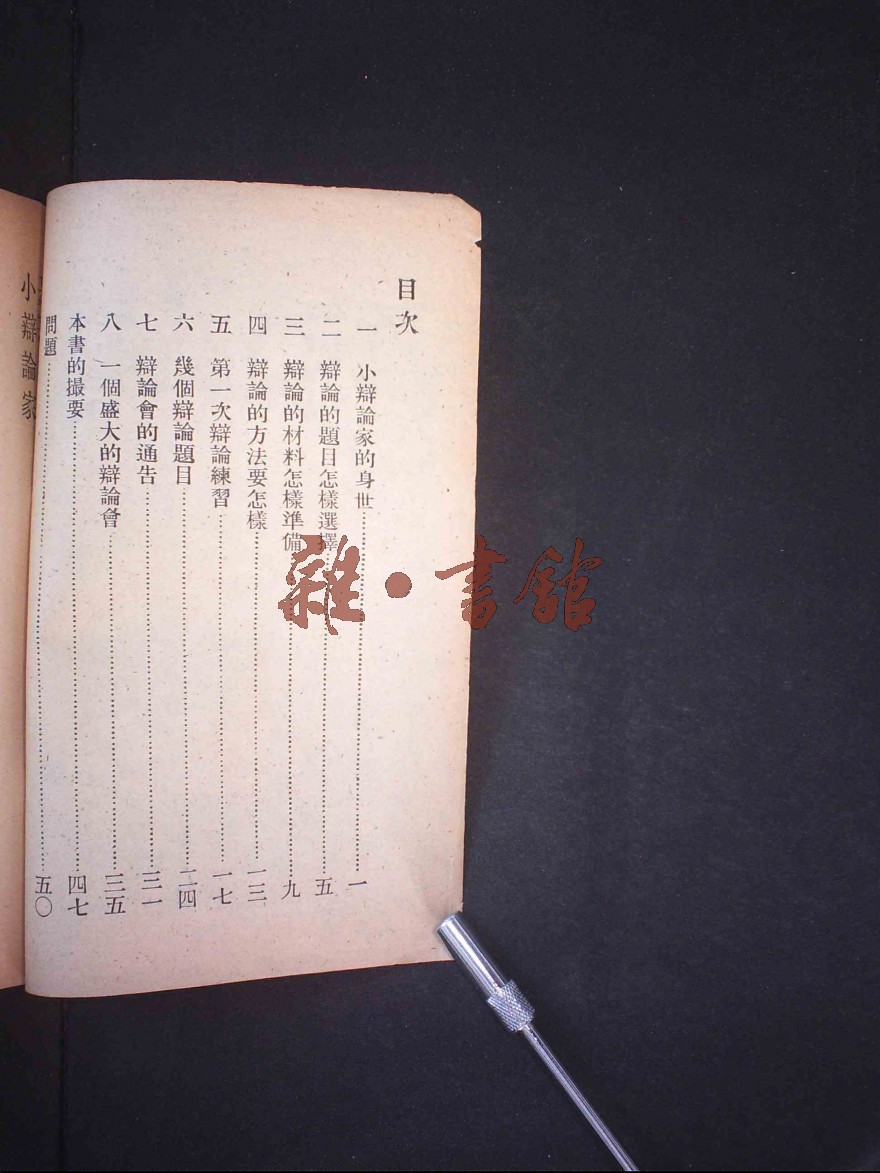 目次
一 小辯論家的身世……一
二 辯論的題目怎樣選擇……五
三 辯論的材料怎樣準備……九
四 辯論的方法要怎樣……一三
五 第一次辯論練習……一七
六 幾個辯論題目……二四
七 辯論會的通告……三一
八 一個盛大的辯論會……三五
本書的撮要……四七
問題……五〇
小辯論家
雜·書館